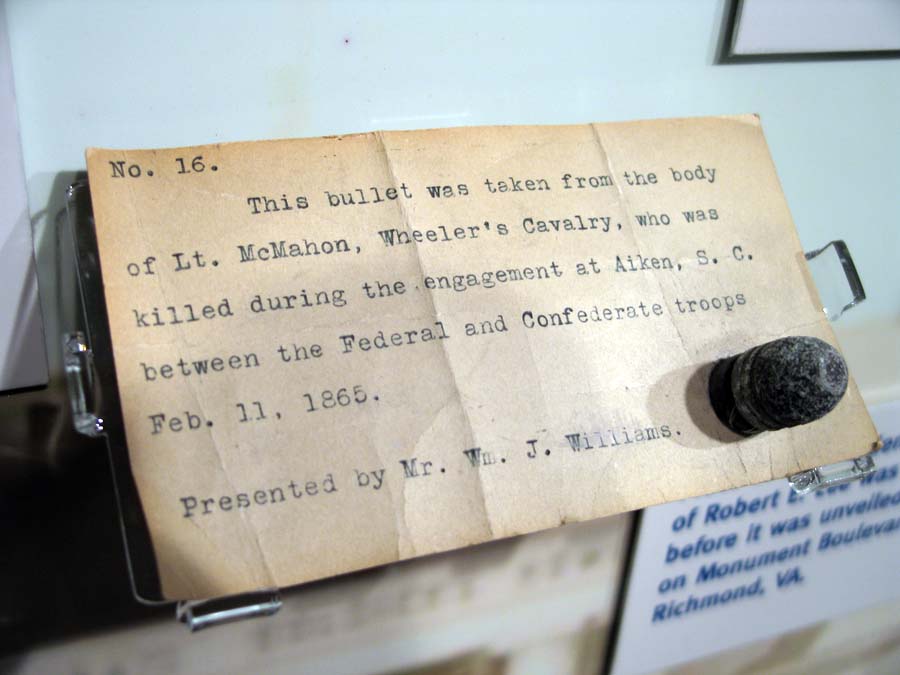 No. 16.
This bullet was taken from the body
of Lt. McMahon, Wheeler's Cavalry, who was
killed during the engagement at Aiken, S. C.
between the Federal and Confederate troops
Feb. 11, 1865.
Presented by Mr. Wm. J. Williams.
of Robert E. Lee was
before it was unveiled
on Monument Boulevar
Richmond, VA.